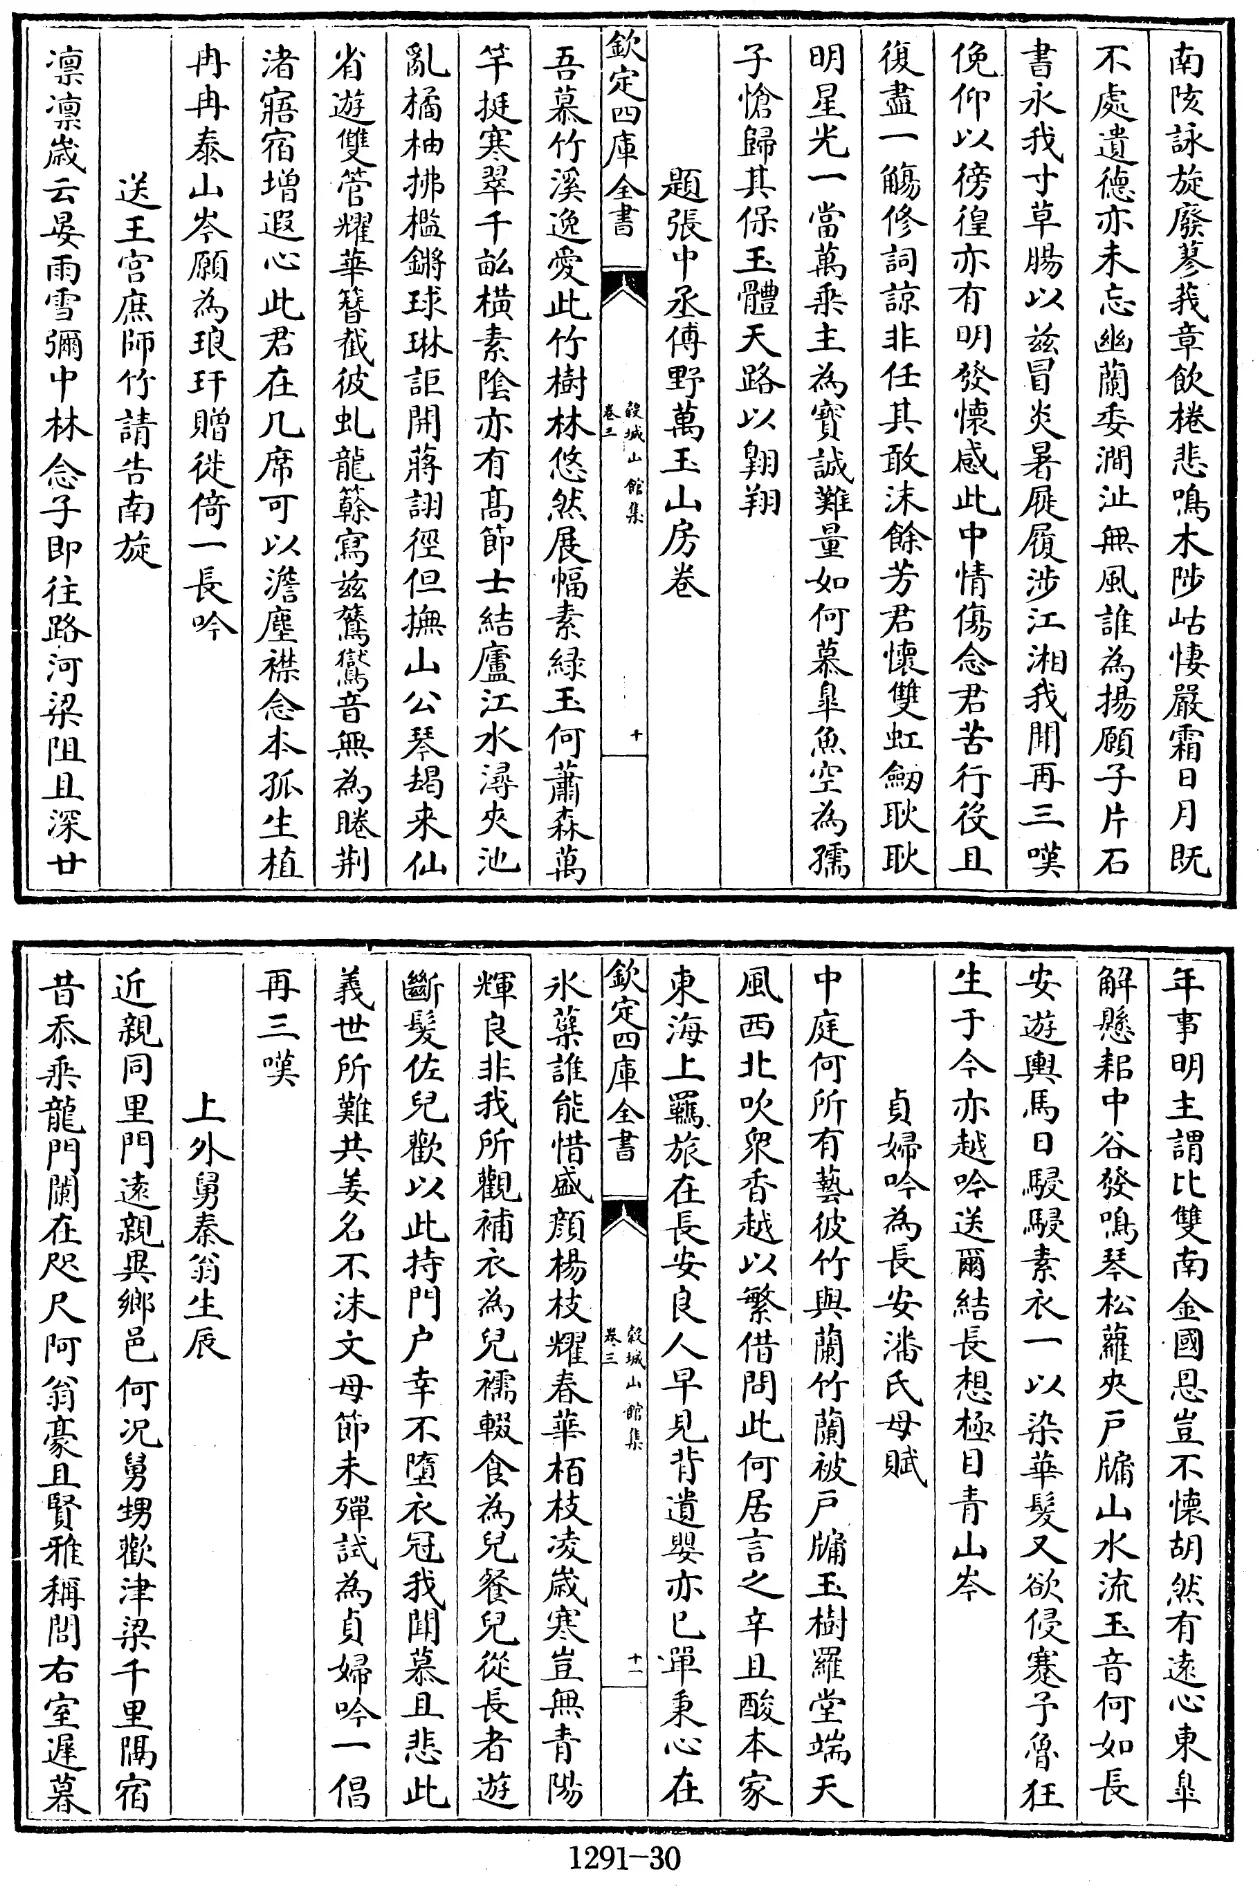 南陔詠旋廢蓼莪章飲棬悲鳴木陟岵悽嚴霜日月既
不處遺德亦未忘幽蘭委澗沚無風誰為揚願子片石
書永我寸草腸以兹冒炎暑屣履涉江湘我聞再三嘆
俛仰以徬徨亦有明發懷感此中情傷念君苦行役且
復盡一觴修詞諒非任其敢沫餘芳君懷雙虹劒耿耿
明星光一當萬乘主為寳誠難量如何慕臯魚空為孺
子愴歸其保玉體天路以翺翔
題張中丞傅野萬玉山房卷
欽定四庫全書
穀城山館集
卷三
十
吾慕竹溪逸愛此竹樹林悠然展幅素緑玉何蕭森萬
竿挺寒翠千畝横素陰亦有髙節士結廬江水潯夾池
亂橘柚拂檻鏘球琳詎開蔣詡徑但撫山公琴朅来仙
省遊雙管耀華簪截彼虬龍簳寫兹鸑鷟音無為睠荆
渚寤宿增遐心此君在几席可以澹塵襟念本孤生植
冉冉泰山岑願為琅玕贈徙倚一長吟
送王宫庶師竹請告南旋
凛凛歲云晏雨雪彌中林念子即往路河梁阻且深廿
年事明主謂比雙南金國恩豈不懷胡然有遠心東臯
解懸耜中谷發鳴琴松蘿夾戸牖山水流玉音何如長
安遊輿馬日駸駸素衣一以染華髪又欲侵蹇予魯狂
生于今亦越吟送爾結長想極目青山岑
貞婦吟為長安潘氏母賦
中庭何所有藝彼竹與蘭竹蘭被戸牖玉樹羅堂端天
風西北吹衆香越以繁借問此何居言之辛且酸本家
東海上羈旅在長安良人早見背遺嬰亦已單秉心在
欽定四庫全書
穀城山館集
卷三
十一
氷蘗誰能惜盛顔楊枝耀春華栢枝凌歲寒豈無青陽
輝良非我所觀補衣為兒襦輟食為兒餐兒從長者遊
斷髪佐兒歡以此持門户幸不墮衣冠我聞慕且悲此
義世所難共姜名不沫文母節未殫試為貞婦吟一倡
再三嘆
上外舅秦翁生辰
近親同里門遠親異鄉邑何况舅甥歡津梁千里隔宿
昔忝乘龍門闌在咫尺阿翁豪且賢雅稱閭右室遲暮
1291-30